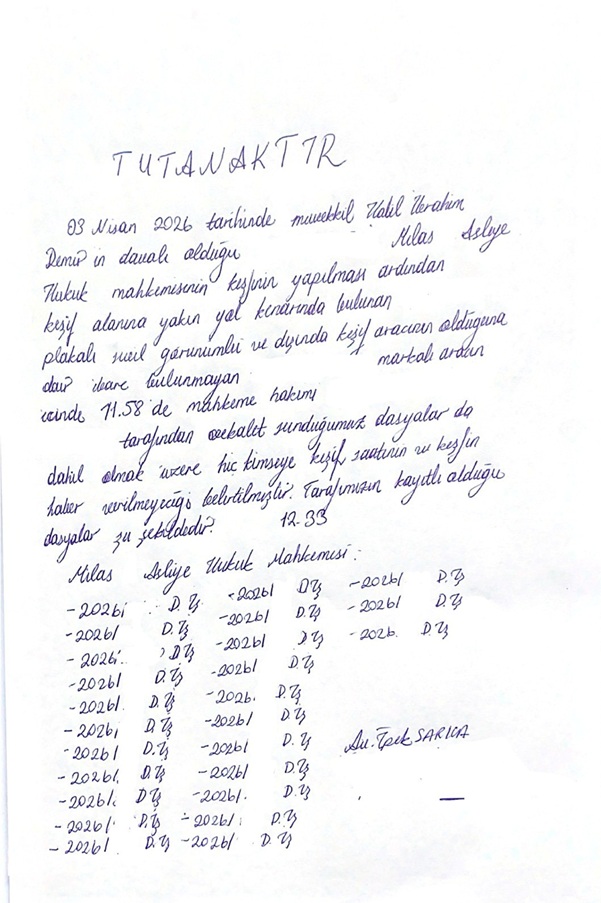 TUTANAKTIR
03 Nisan 2026 tarihinde müvekkil Halil İbrahim
Demir'in davalı olduğu Milas Asliye
Hukuk mahkemesinin keşfinin yapılması ardından
keşif alanına yakın yol kenarında bulunan
plakalı sivil görünümlü ve dışında keşif aracının olduğuna
dair ibare bulunmayan markalı aracın
içinde 11.58'de mahkeme hakimi
tarafından vekalet sunduğumuz dosyalar da
dahil olmak üzere hiç kimseye keşif saatinin ve keşfin
haber verilmeyeceği belirtilmiştir. Tarafımızın kayıtlı olduğu
dosyalar şu şekildedir: 12.33
Milas Asliye Hukuk Mahkemesi:
-2026/ D.İş -2026/ D.İş -2026/ D.İş
-2026/ D.İş -2026/ D.İş -2026/ D.İş
-2026/ D.İş -2026/ D.İş -2026. D.İş
-2026/ D.İş -2026/ D.İş
-2026/ D.İş -2026. D.İş
-2026/ D.İş -2026/ D.İş
-2026/ D.İş -2026/ D.İş
-2026/ D.İş -2026/ D.İş
-2026/ D.İş -2026/ D.İş
-2026/ D.İş -2026/ D.İş
-2026/ D.İş -2026/ D.İş
Av. İpek SARICA